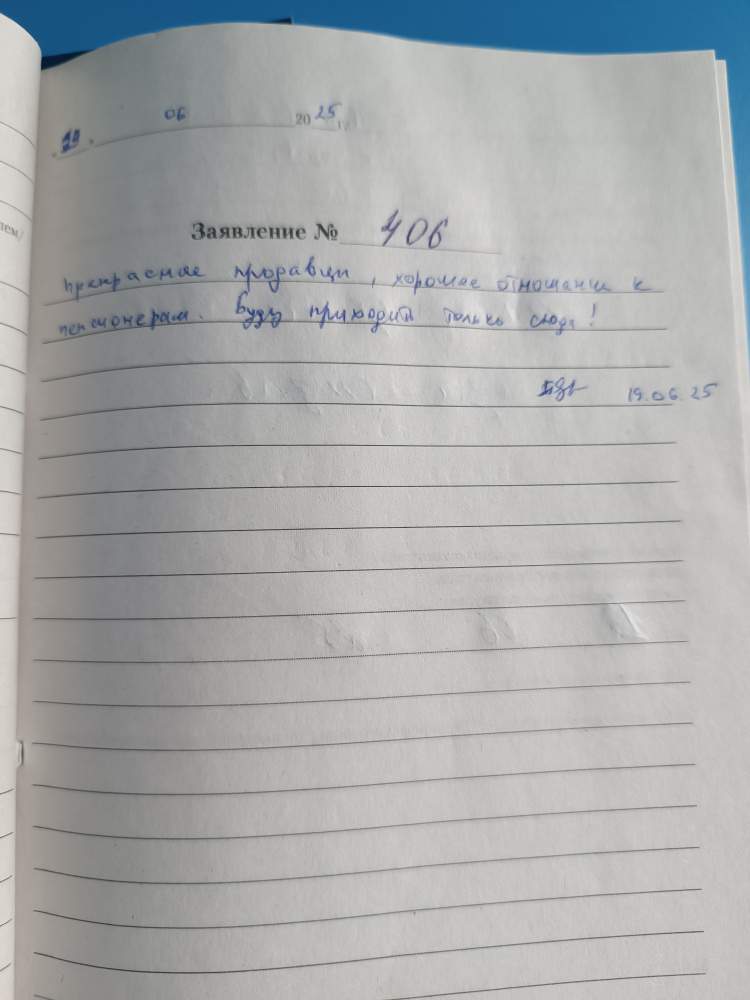 « 19 » 06 2025 г.
Заявление № 406
Прекрасные продавцы, хорошее отношение к
пенсионерам. Буду приходить только сюда!
19.06.25